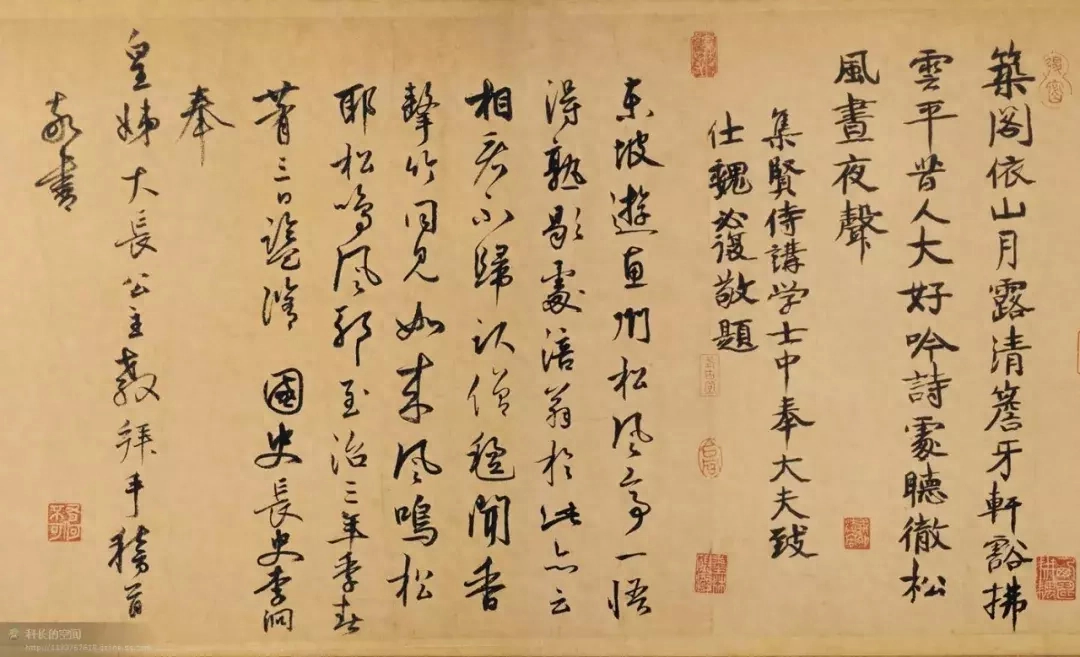 築閣依山月露清簷牙軒豁拂
雲平昔人大好吟詩處聽徹松
風晝夜聲
集賢侍講学士中奉大夫致
仕魏必復敬題
東坡遊惠州松風亭一悟
得熟歇處涪翁於此亦云
相不歸僧聞香
擊竹同見如来風鳴松
耶松鳴風耶至治三年季春
三日國史長史李泂
奉
皇姊大長公主教拜手稽首
敬書
科长的空间